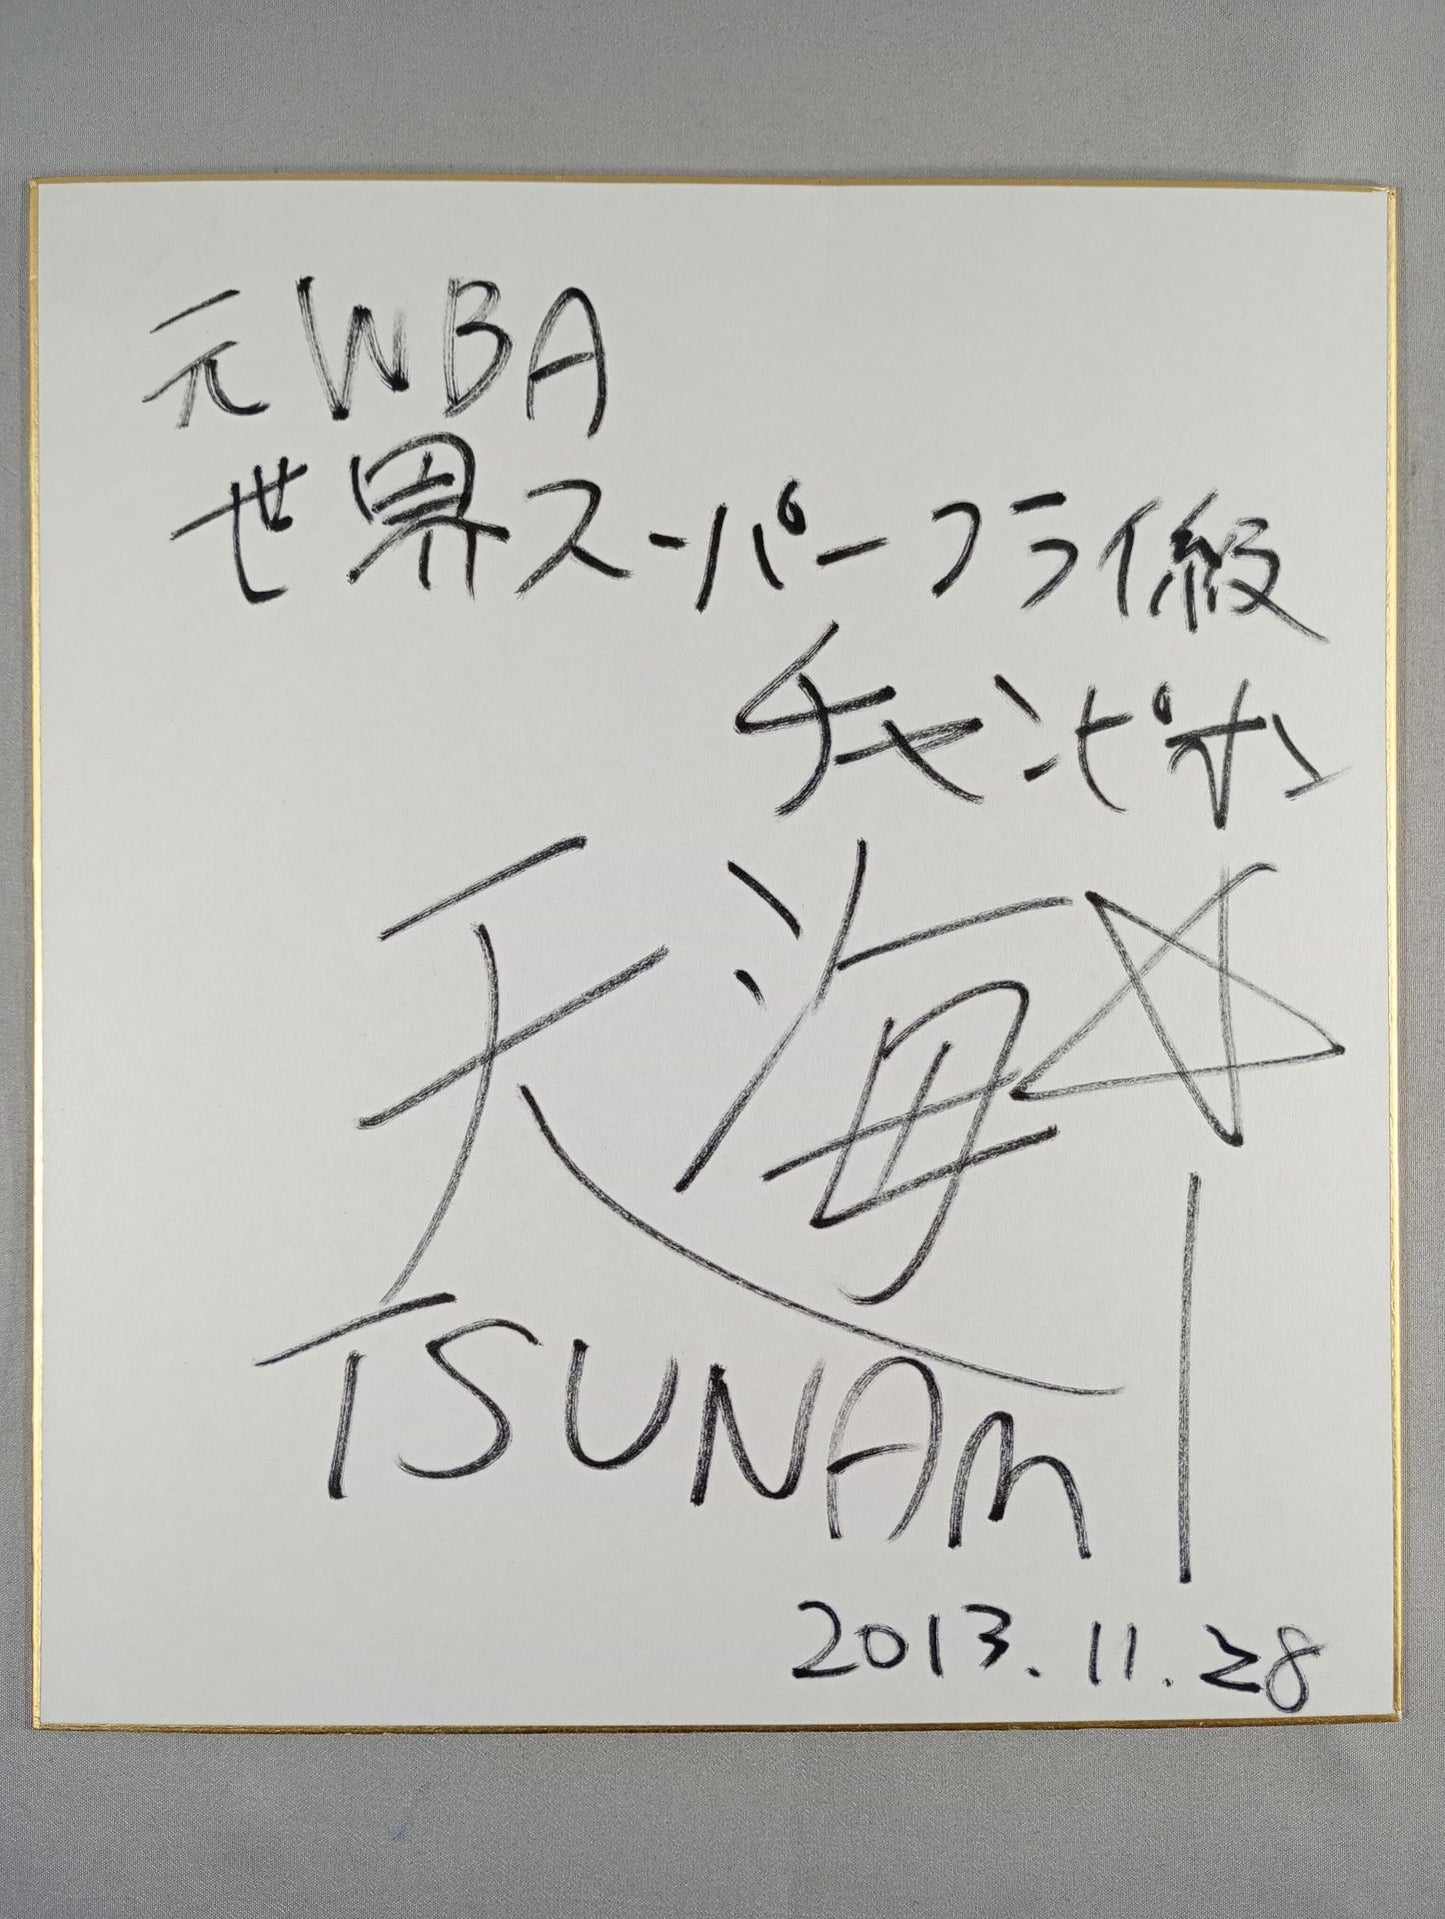 元WBA
世界スーパーフライ級
チャンピオン
天海☆
TSUNAMI
2013.11.28